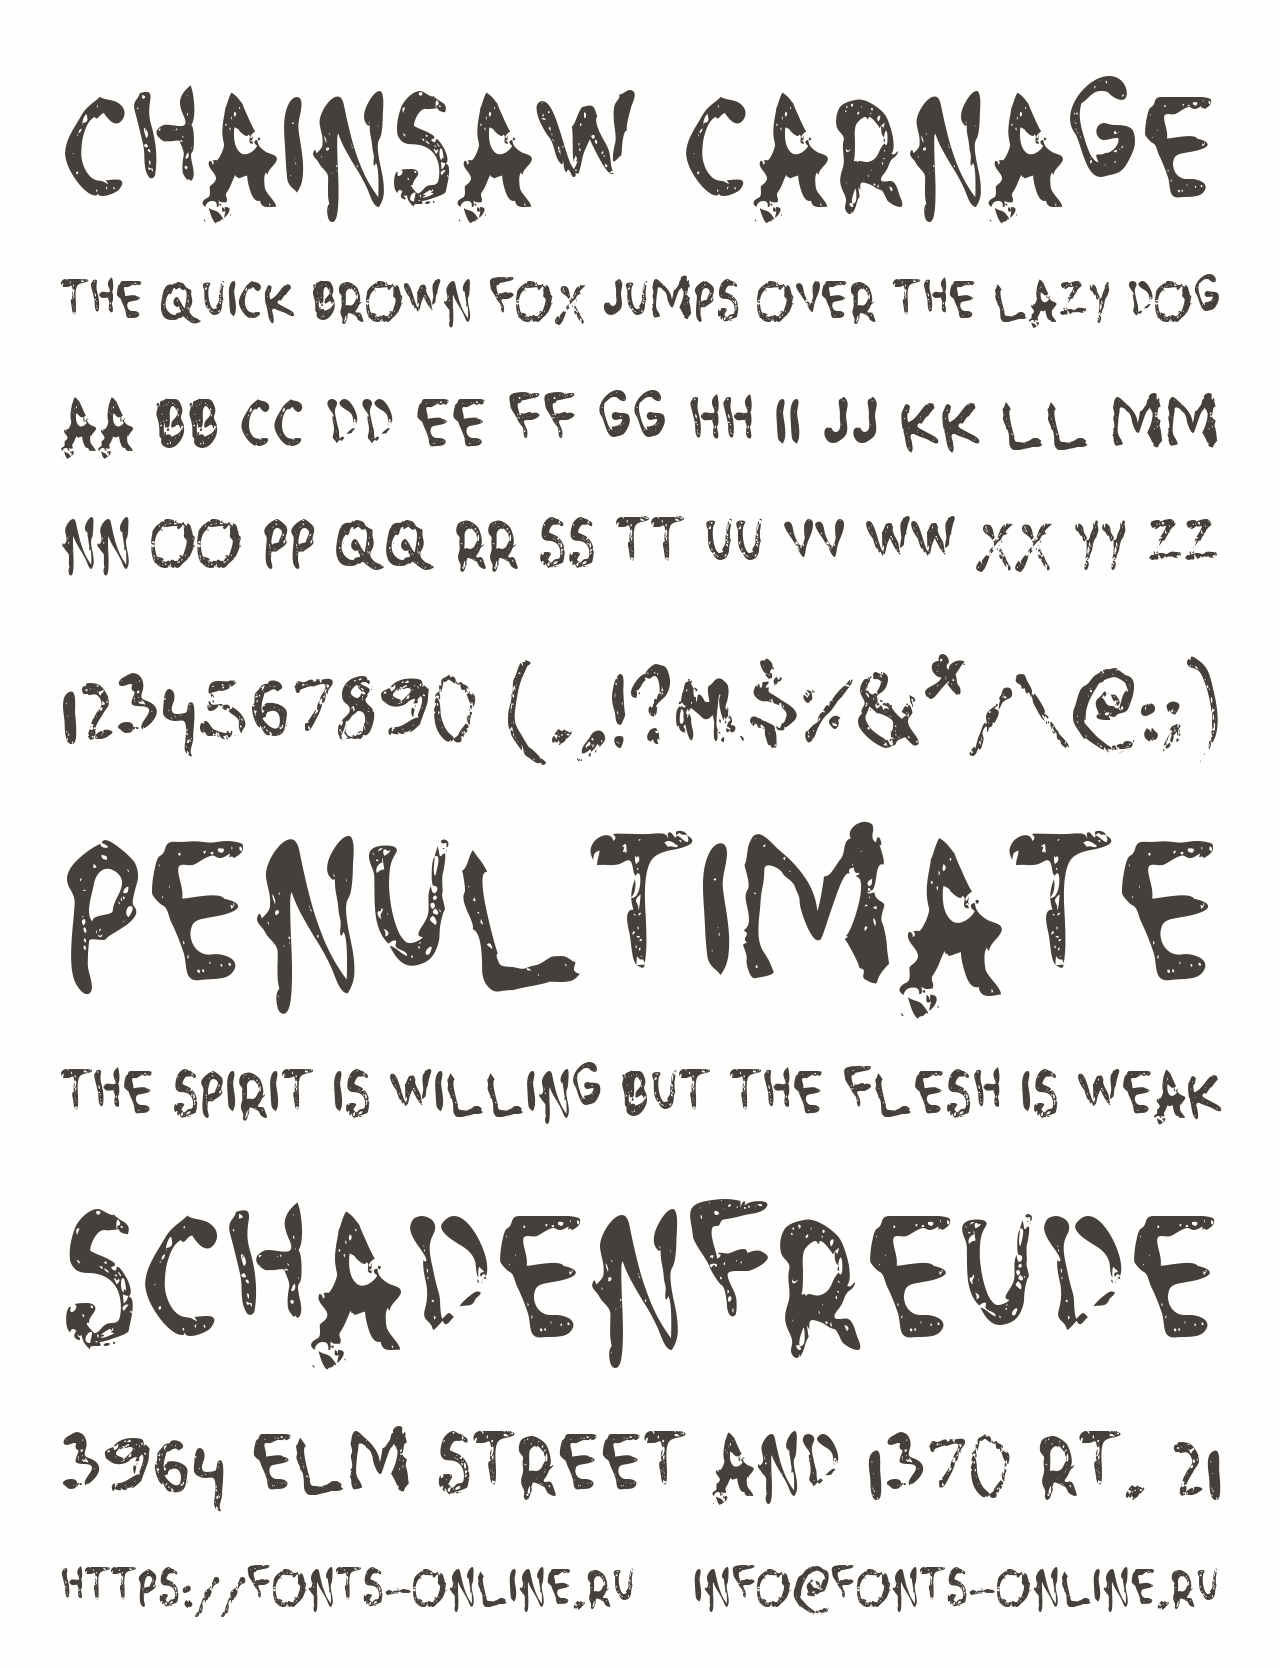 CHAINSAW CARNAGE
THE QUICK BROWN FOX JUMPS OVER THE LAZY DOG
AA BB CC DD EE FF GG HH II JJ KK LL MM
NN OO PP QQ RR SS TT UU VV WW XX YY ZZ
1234567890 (.,!?#$%&*/\@:;)
PENULTIMATE
THE SPIRIT IS WILLING BUT THE FLESH IS WEAK
SCHADENFREUDE
3964 ELM STREET AND 1370 RT. 21
HTTPS://FONTS-ONLINE.RU INFO@FONTS-ONLINE.RU